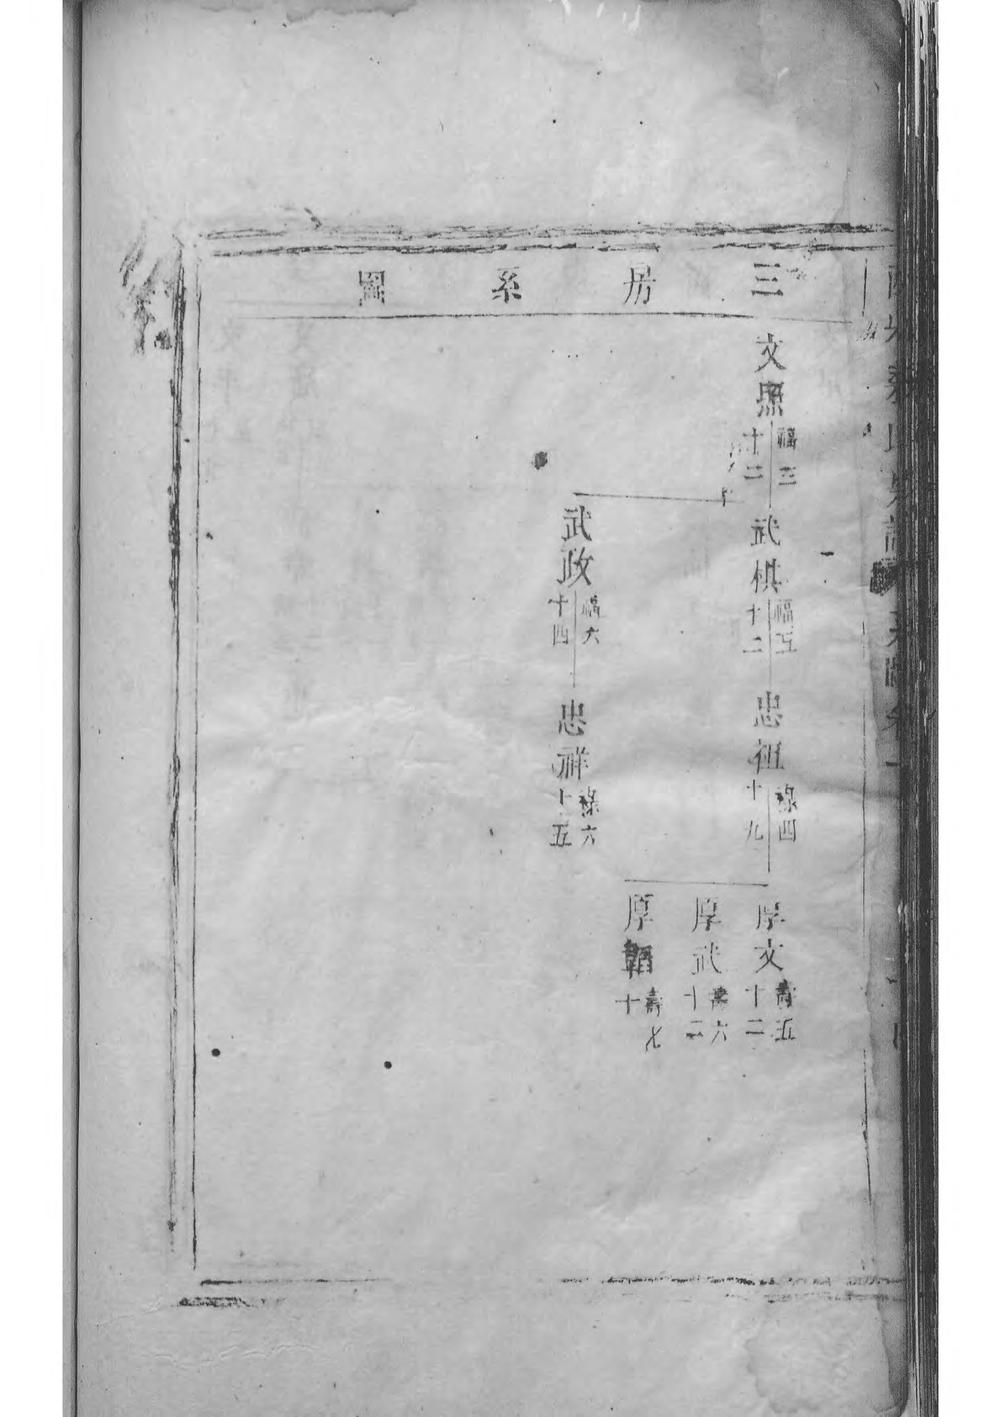 三房系圖
文照 福三 十二
武棋 福五 十二
忠祖 祿四 十九
厚文 壽五 十二
厚武 壽六 十二
厚韜 壽七 十
武政 福六 十四
忠祥 祿六 十五